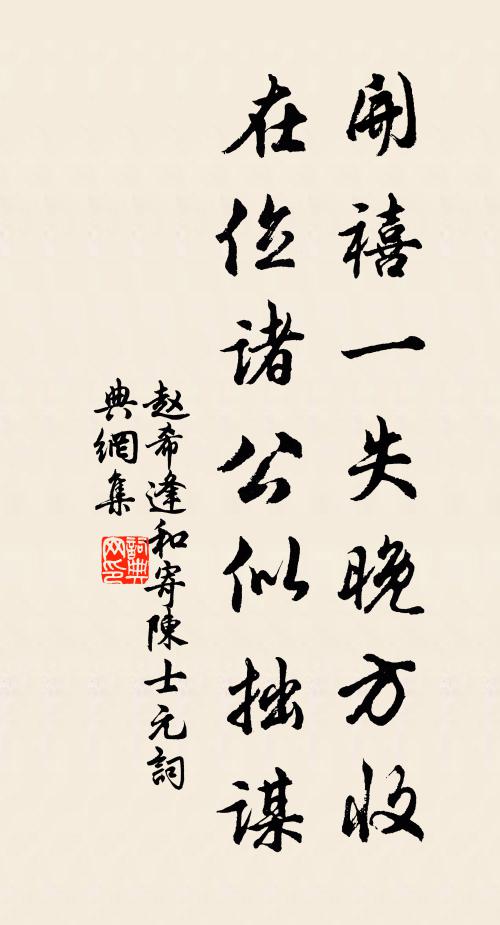 開禧一失晚方收
在位諸公似拙謀
赵希逢和寄陳士元詞
典網集
詞典网印